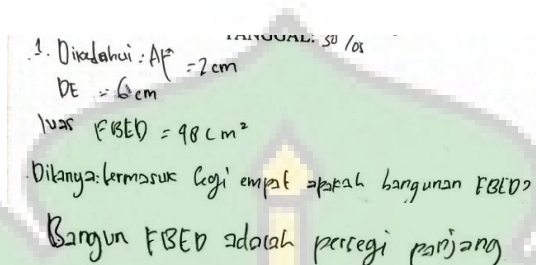 TANGGAL: 30/05
1. Diketahui : AF = 2 cm
DE = 6 cm
luas FBED = 98 cm²
Ditanya: termasuk segi empat apakah bangunan FBED?
Bangun FBED adalah persegi panjang